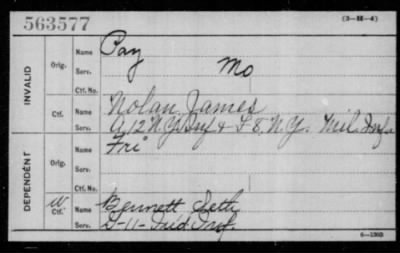 563577
(3-H-4)
INVALID
Orig.
Name Pay
Serv. Mo
Ctf. No.
Ctf.
Name Nolan James
Serv. A, 12 N.Y. Inf & F 8, N.Y. Mil. Inf.
DEPENDENT
Orig.
Name Fri
Serv.
Ctf. No.
W
Ctf.
Name Bennett Seth
Serv. D-11-Ind Inf.